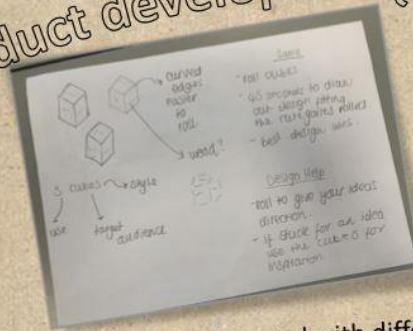 duct develop
curved
edges
easier
to
roll
wood?
3 cubes → style
use
target
audience
Game
- roll cubes
- 45 seconds to draw
out design fitting
the categories rolled
- best design wins.
Design Help
- roll to give your ideas
direction.
- if stuck for an idea
use the cubes for
inspiration.
with diffe